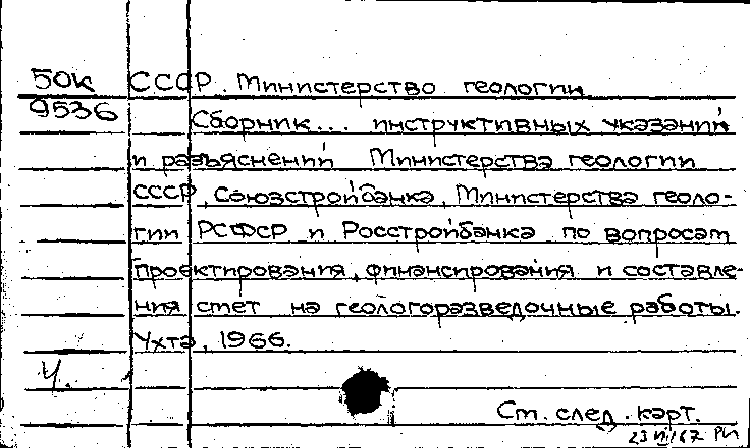 50к СССР. Министерство геологии
9536 Сборник... инструктивных указаний
и разъяснений Министерства геологии
СССР, Союзстройбанка, Министерства геоло-
гии РСФСР и Росстройбанка по вопросам
проектирования, финансирования и составле-
ния смет на геологоразведочные работы.
Ухта, 1966.
Ч.
См. след. карт.